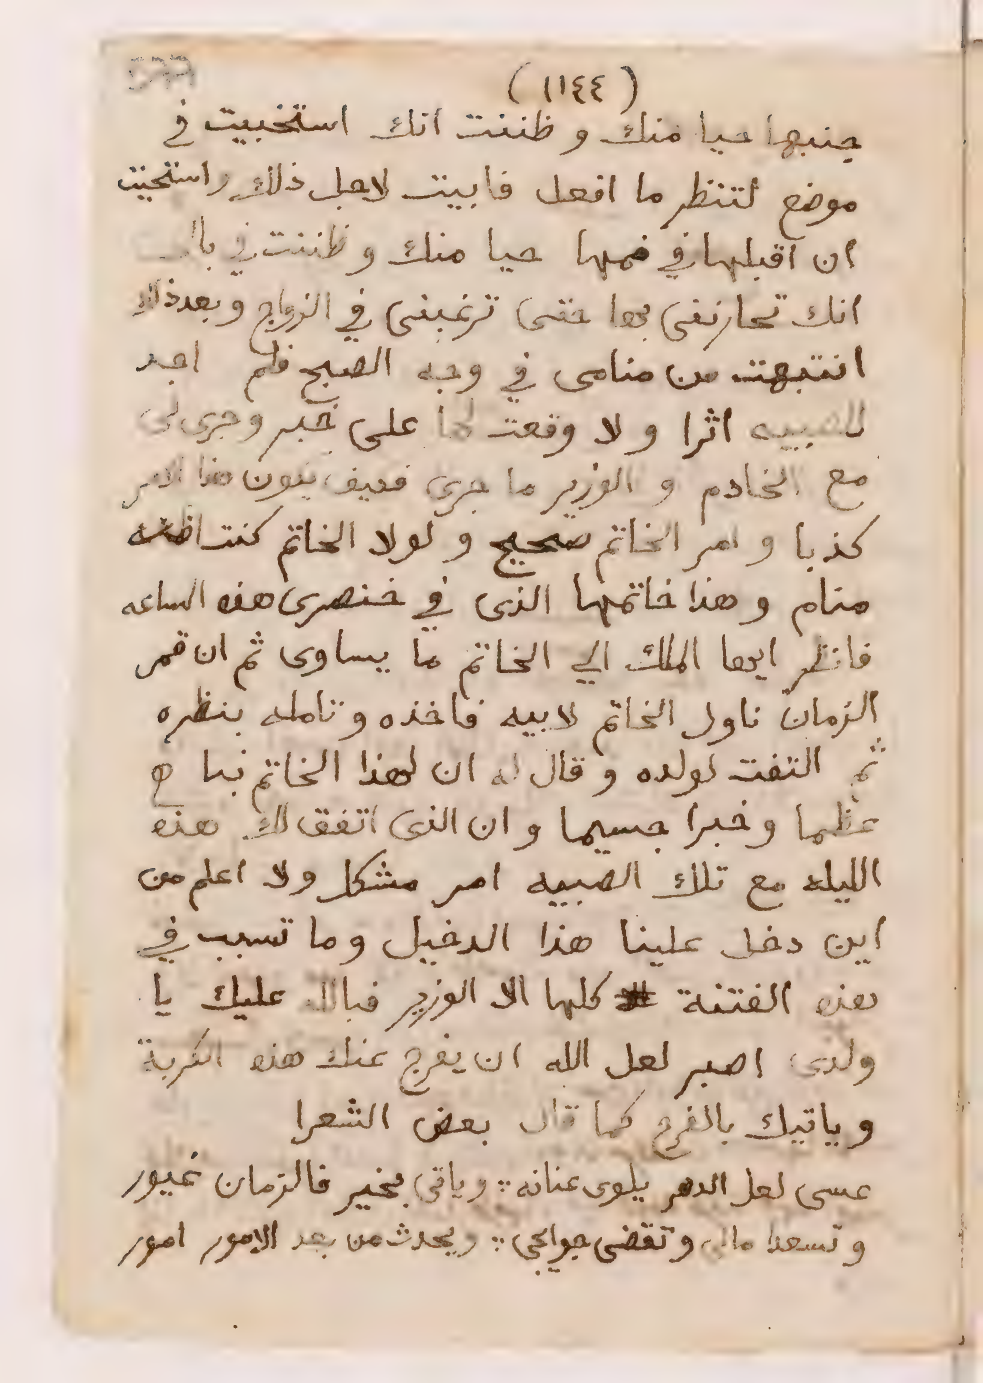 (١١٤٤)
جنبها حيا منك و ظننت انك استخبيت في
موضع لتنظر ما افعل فابيت لاجل ذلك واستحيت
ان اقبلها في فمها حيا منك و ظننت في بالي
انك تحارنفى بها حتى ترغبنى في الزواج وبعد ذلك
انتبهت من منامى في وجه الصبح فلم اجد
للصبيه اثرا و لا وقعت لها على خبر و جرى لى
مع الخادم و الوزير ما جرى فكيف يكون هذا الامر
كذبا و امر الخاتم صحيح و لولا الخاتم كنت اظنه
منام و هذا خاتمها الذى في خنصرى هذه الساعه
فانظر ايها الملك الي الخاتم ما يساوى ثم ان قمر
الزمان ناول الخاتم لابيه فاخذه و تامله بنظره
ثم التفت لولده و قال له ان لهذا الخاتم نبا
عظيما و خبرا جسيما و ان الذى اتفق لك هذه
الليله مع تلك الصبيه امر مشكل ولا اعلم من
اين دخل علينا هذا الدخيل و ما تسبب في
هذه الفتنة كلها الا الوزير فبالله عليك يا
ولدى اصبر لعل الله ان يفرج عنك هذه الكربة
و ياتيك بالفرج كما قال بعض الشعرا
عسى لعل الدهر يلوى عنانه ؞ و ياتى بخير فالزمان غيور
و تسعدا مالى و تقضى حوايجى ؞ و يحدث من بعد الامور امور